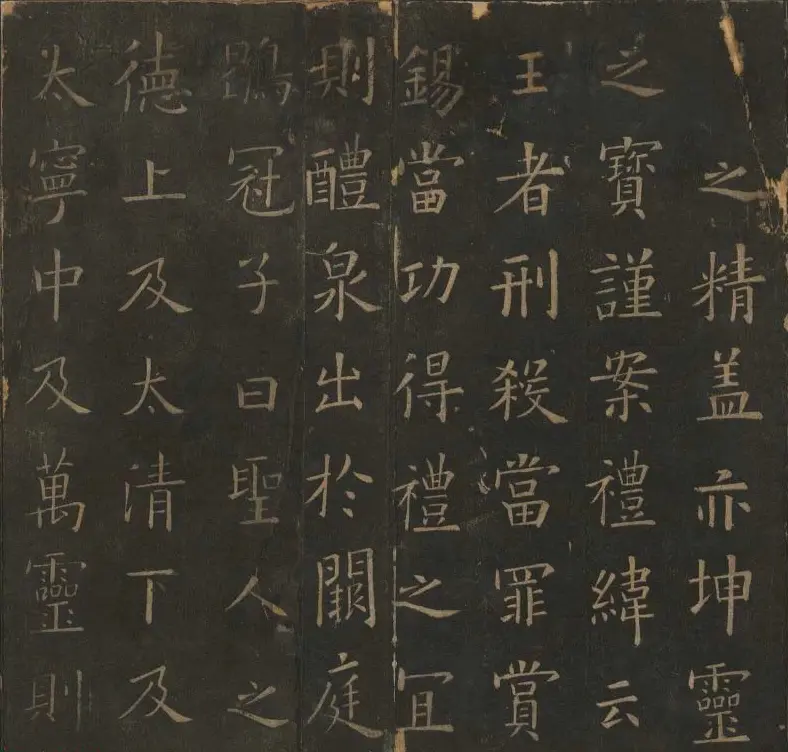 之精盖亦坤靈
之寶謹案禮緯云
王者刑殺當罪賞
錫當功得禮之冝
則醴泉出於闕庭
鶡冠子曰聖人之
德上及太清下及
太寧中及萬靈則